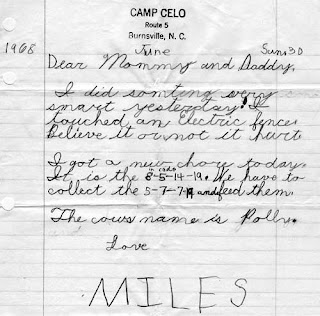 CAMP CELO
Route 5
Burnsville, N. C.
1968 June Sun. 30
Dear Mommy and Daddy,
I did somting very
smart yesterday. I
touched an electric fence
Believe it or not it hurt
I got a new chory today.
It is the in code 8-5-14-19. We have to
collect the 5-7-7-19 and feed them.
The cows name is Polly.
Love
MILES